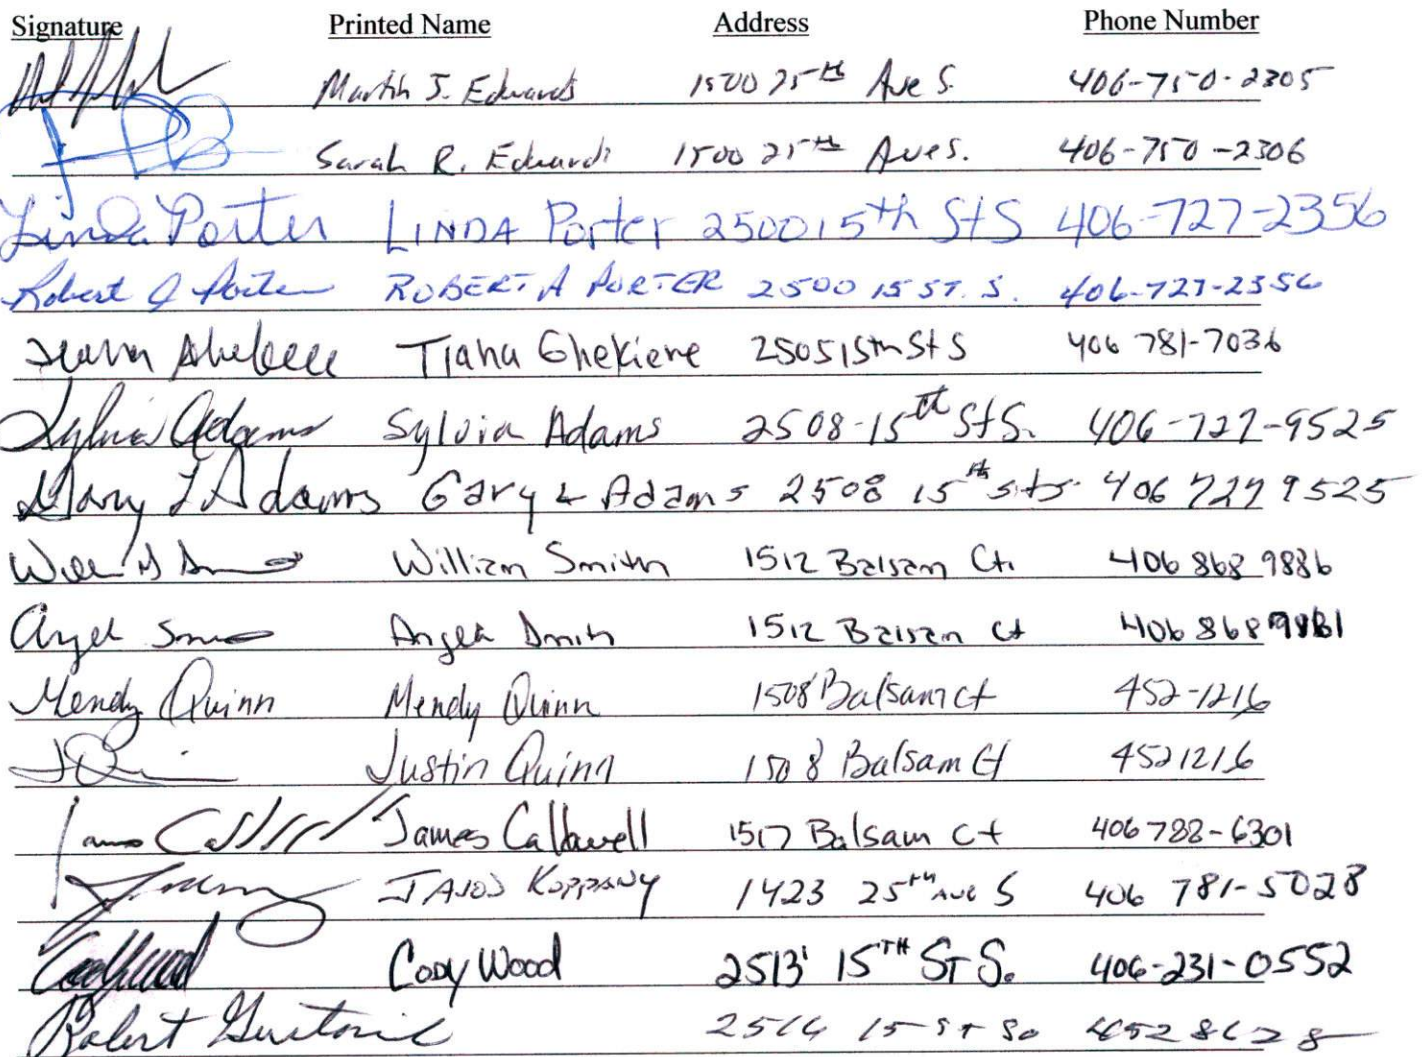 Signature Printed Name Address Phone Number
Martin J. Edwards 1500 25th Ave S. 406-750-2305
Sarah R. Edwards 1500 25th Ave S. 406-750-2306
Linda Porter LINDA Porter 2500 15th St S 406-727-2356
Robert A Porter ROBERT A PORTER 2500 15 ST. S. 406-727-2356
Tiana Ghekiere 2505 15th St S 406 781-7036
Sylvia Adams Sylvia Adams 2508-15th St S. 406-727-9525
Gary L Adams Gary L Adams 2508 15th St S 406 727 9525
William Smith 1512 Balsam Ct. 406 868 9886
Angela Smith 1512 Balsam Ct 406 868
Mendy Quinn Mendy Quinn 1508 Balsam Ct 452-1216
J Quinn Justin Quinn 1508 Balsam Ct 4521216
James Caldwell 1517 Balsam Ct 406 788-6301
Koppany 1423 25th Ave S 406 781-5028
Cody Wood Cody Wood 2513 15TH ST S. 406-231-0552
Robert 15 St So